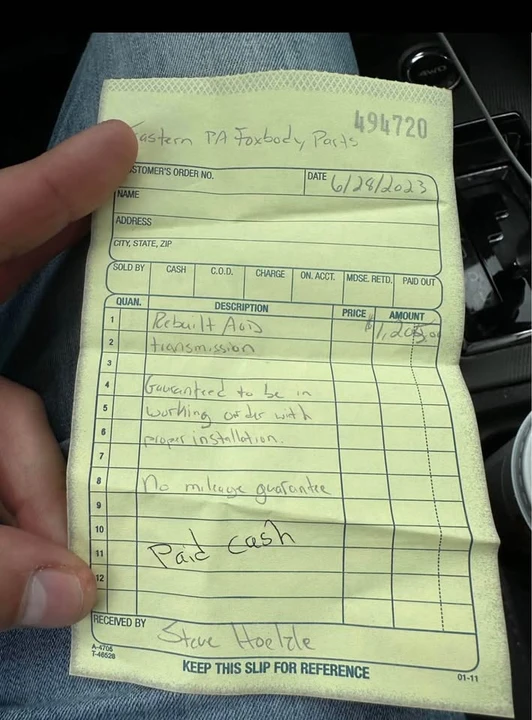 4WD
494720
Eastern PA Foxbody Parts
CUSTOMER'S ORDER NO.
DATE 6/28/2023
NAME
ADDRESS
CITY, STATE, ZIP
SOLD BY CASH C.O.D. CHARGE ON. ACCT. MDSE. RETD. PAID OUT
QUAN. DESCRIPTION PRICE AMOUNT
1 Rebuilt AOD
2 transmission
3
4 Guaranteed to be in
5 working order with
6 proper installation.
7
8 No mileage guarantee
9
10
11 Paid cash
12
RECEIVED BY Steve Hoelzle
A-4705
T-46520
KEEP THIS SLIP FOR REFERENCE
01-11